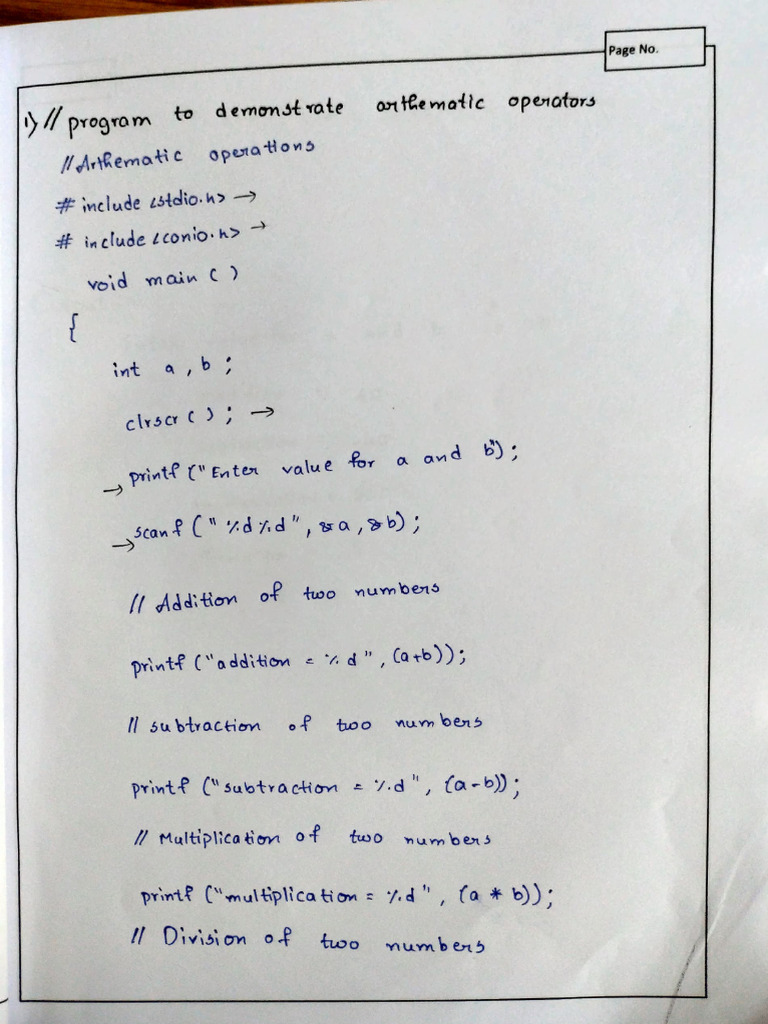 Page No.
1) // program to demonstrate arthematic operators
// Arthematic operations
# include <stdio.h> →
# include <conio.h> →
void main ( )
{
int a , b ;
clrscr ( ) ; →
→ printf ("Enter value for a and b");
→ scanf ("%d%d", &a, &b);
// Addition of two numbers
printf ("addition = %d", (a+b));
// subtraction of two numbers
printf ("subtraction = %d", (a-b));
// Multiplication of two numbers
printf ("multiplication = %d", (a * b));
// Division of two numbers